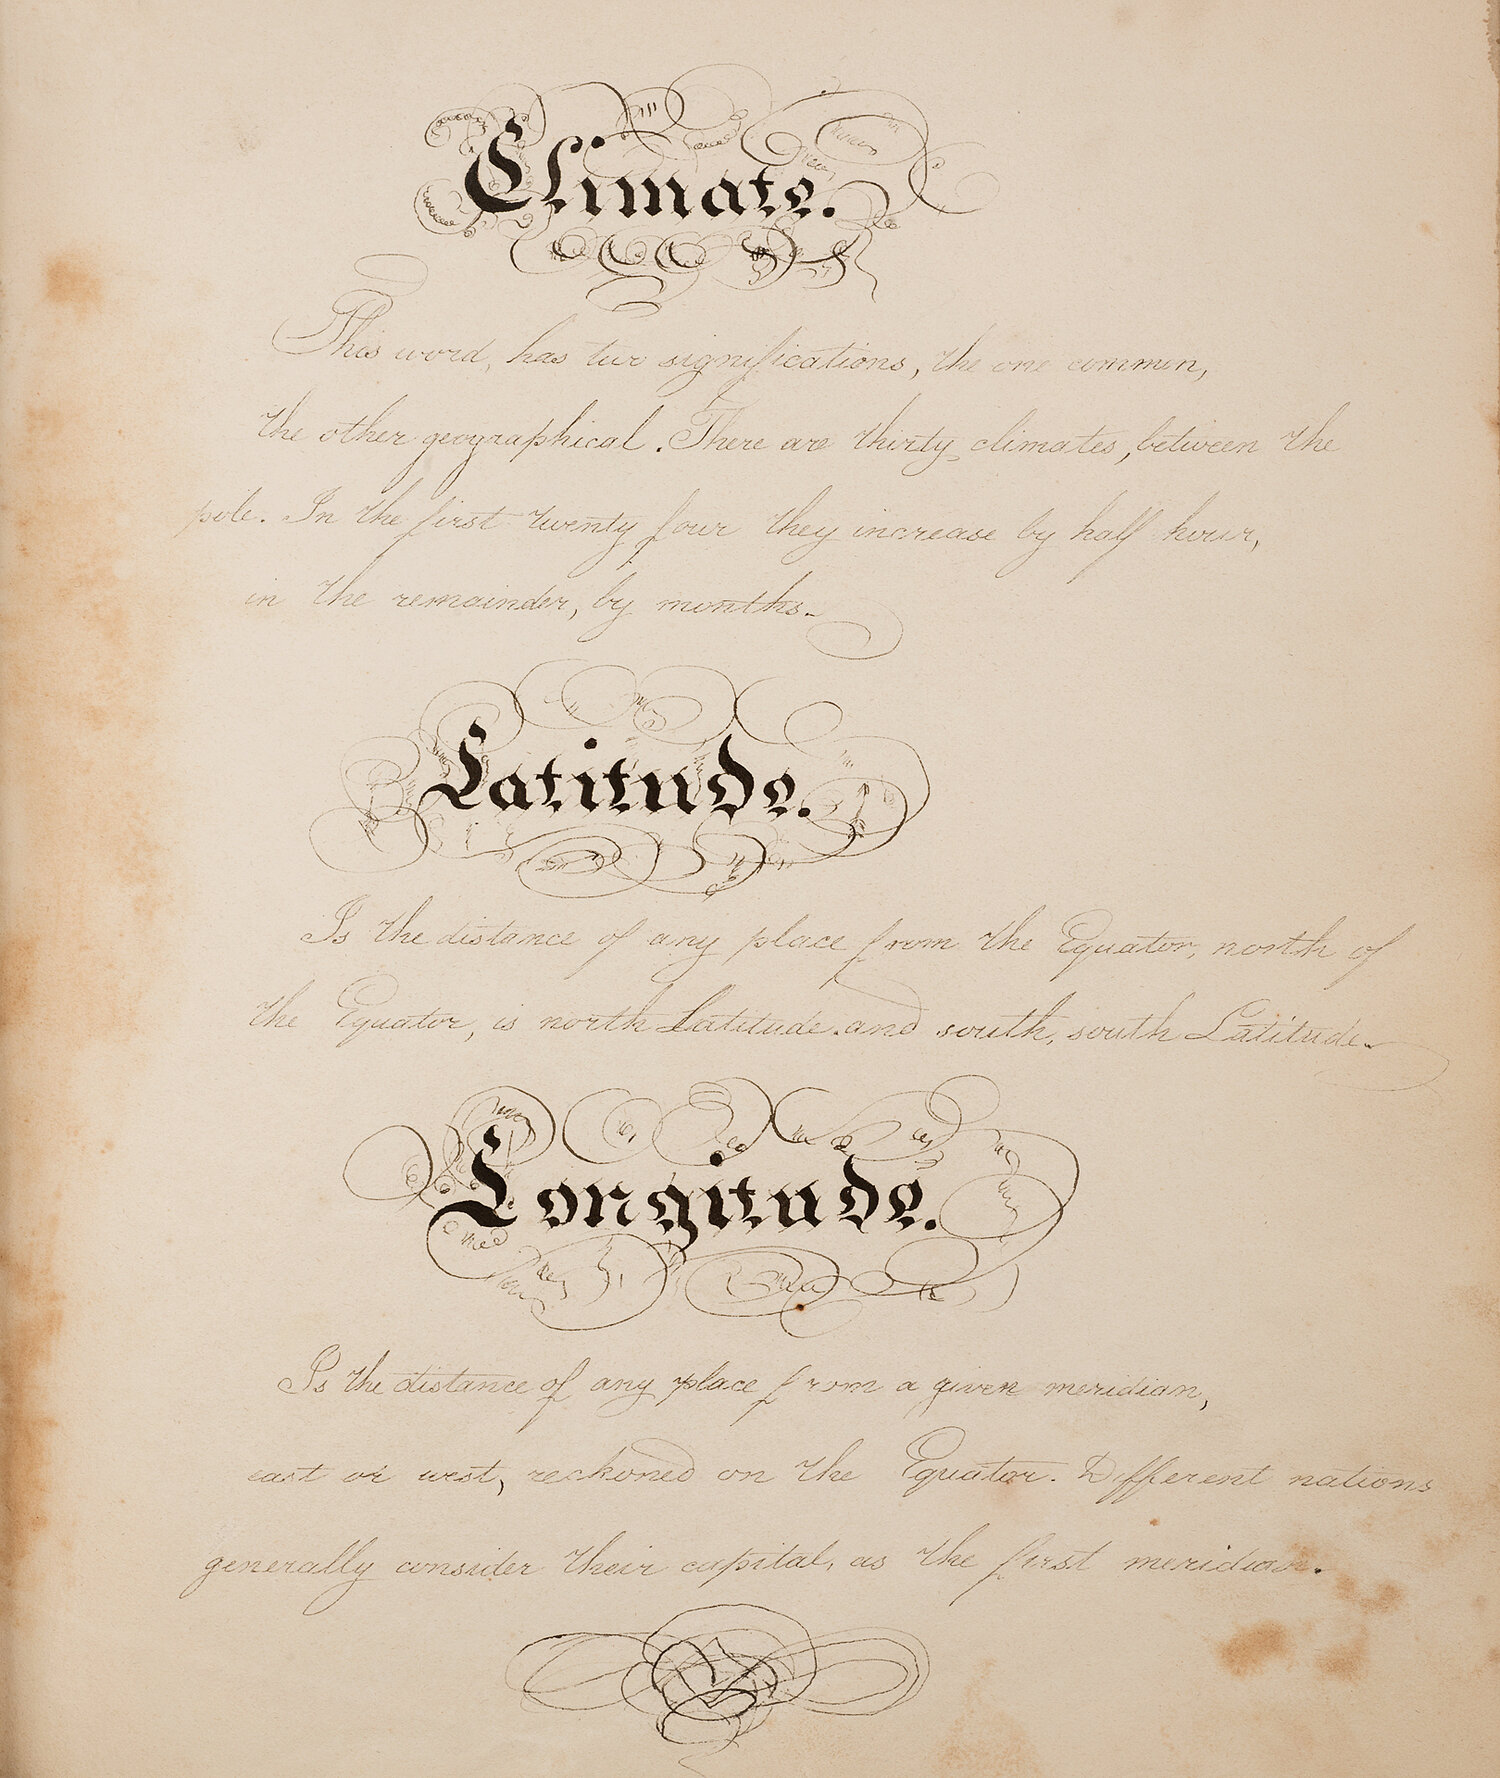 Climate.
This word, has two significations, the one common,
the other geographical. There are thirty climates, between the
pole. In the first twenty four they increase by half hour,
in the remainder, by months.
Latitude.
Is the distance of any place from the Equator, north of
the Equator, is north Latitude. and south, south Latitude.
Longitude.
Is the distance of any place from a given meridian,
east or west, reckoned on the Equator. Different nations
generally consider their capital, as the first meridian.